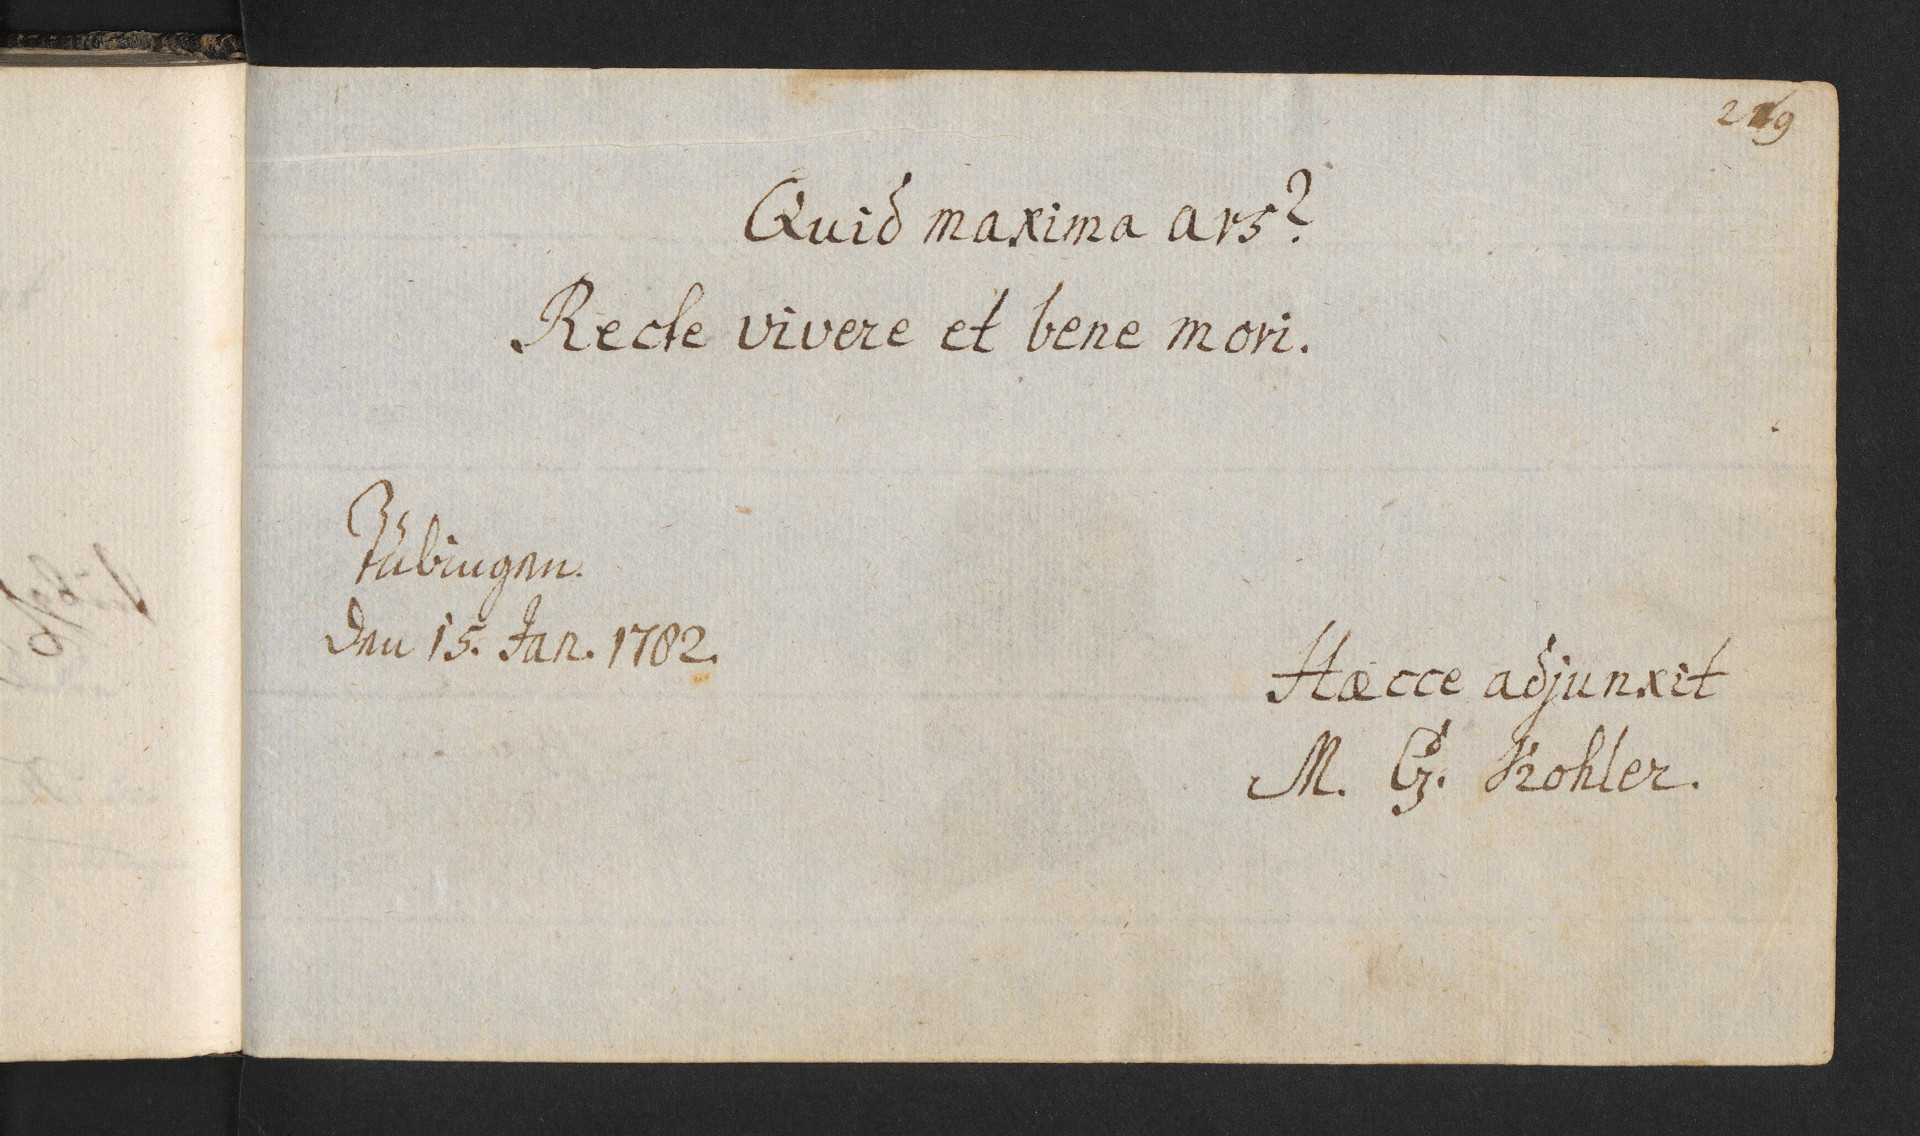 Quid maxima ars?
Recte vivere et bene mori.
Tübingen.
den 15. Jan. 1782.
Hæcce adjunxit
M. G. Kohler.